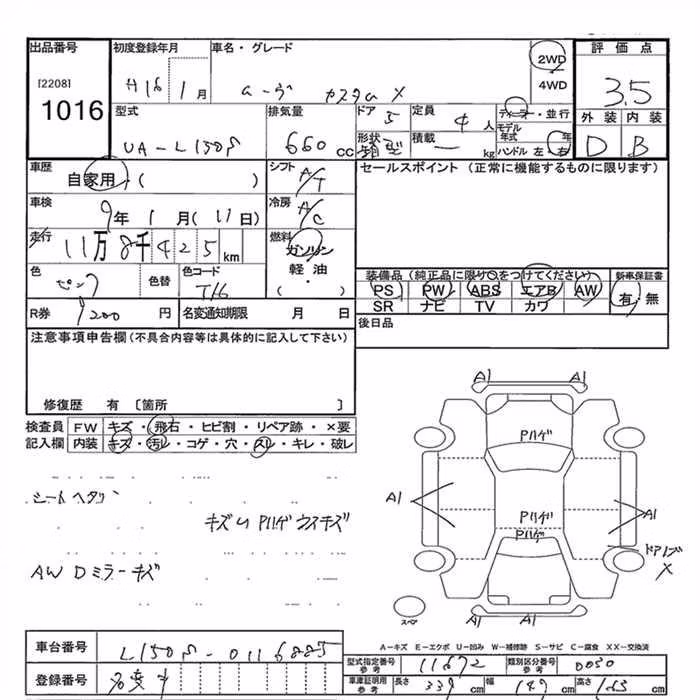 出品番号 初度登録年月 車名・グレード 2WD 評価点
[2208] H16 1月 ムーヴ カスタム X 4WD 3.5
1016 型式 排気量 ドア 5 定員 4人 ディーラー・並行 外装 内装
UA-L150S 660cc 形状 箱型 積載 ー kg モデル年式 年 D B
ハンドル 左・右
車歴 自家用・( ) シフト A/T セールスポイント (正常に機能するものに限ります)
車検 9年 1月(11日) 冷房 A/C
走行 11万8千425km 燃料 ガソリン
軽油
・
( )
色 ピンク 色替 色コード T16 装備品(純正品に限り○をつけてください) 新車保証書
PS PW ABS エアB AW 有・無
R券 9200円 名変通知期限 月 日 SR ナビ TV カワ
注意事項申告欄(不具合内容等は具体的に記入して下さい) 後日品
修復歴 有 〔箇所 〕
検査員 FW キズ・飛石・ヒビ割・リペア跡・×要
記入欄 内装 キズ・汚レ・コゲ・穴・スレ・キレ・破レ
A1 A1
Pハゲ
シートヘタリ
A1 Pハゲ A1
キズ Pハゲ ウスキズ
Pハゲ
AW Dミラーキズ
X
スペア
A1 A1
車台番号 L150S-0116885
A-キズ E-エクボ U-凹み W-補修跡 S-サビ C-腐食 XX-交換済
型式指定番号 参考 11672 類別区分番号 参考 0030
登録番号
車庫証明用 参考 長さ 339cm 幅 147cm 高さ 163cm